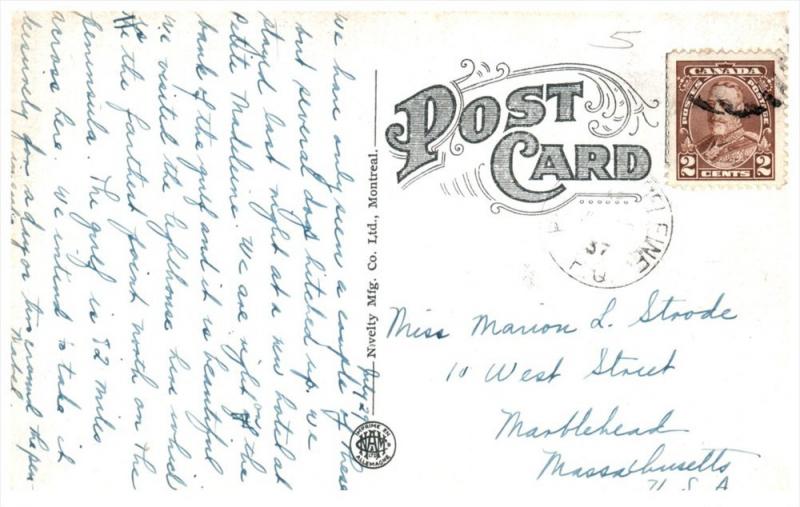 July 29
We have only seen a couple of these
but several dogs hitched up. We
stayed last night at a new hotel at
Petite Madeleine. We are right on the
bank of the gulf and it is beautiful
We visited the lighthouse here which
is the farthest point north on the
Peninsula. The gulf is miles
across here. We intend to take it
leisurely for a day or two around the pen-
insula. Mabel.
Novelty Mfg. Co. Ltd., Montreal.
IMPRIMÉ EN
ALLEMAGNE
POST
CARD
5
CANADA
POSTES POSTAGE
2 CENTS 2
37
P.Q.
Miss Marion L. Strode
10 West Street
Marblehead
Massachusetts
U.S.A